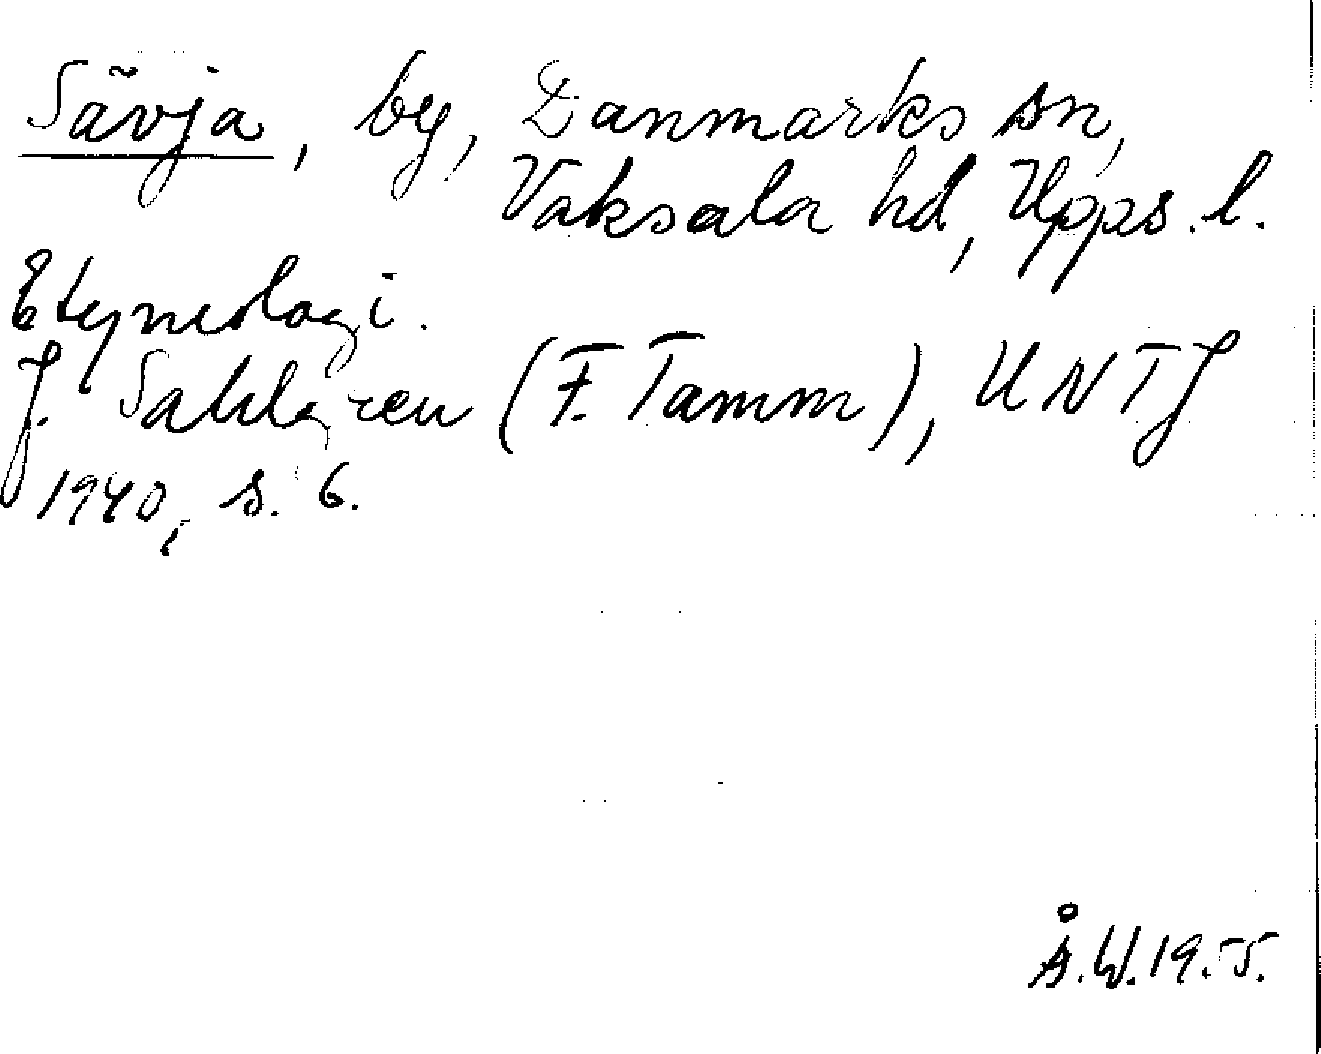 Sävja, by, Danmarks sn,
Vaksala hd, Upps. l.
Etymologi.
J. Sahlgren (F. Tamm), UNTJ
1940, s. 6.
Å.W.19.55.